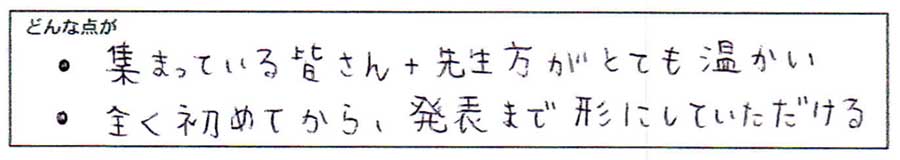 どんな点が
• 集まっている皆さん+先生方がとても温かい
• 全く初めてから、発表まで形にしていただける